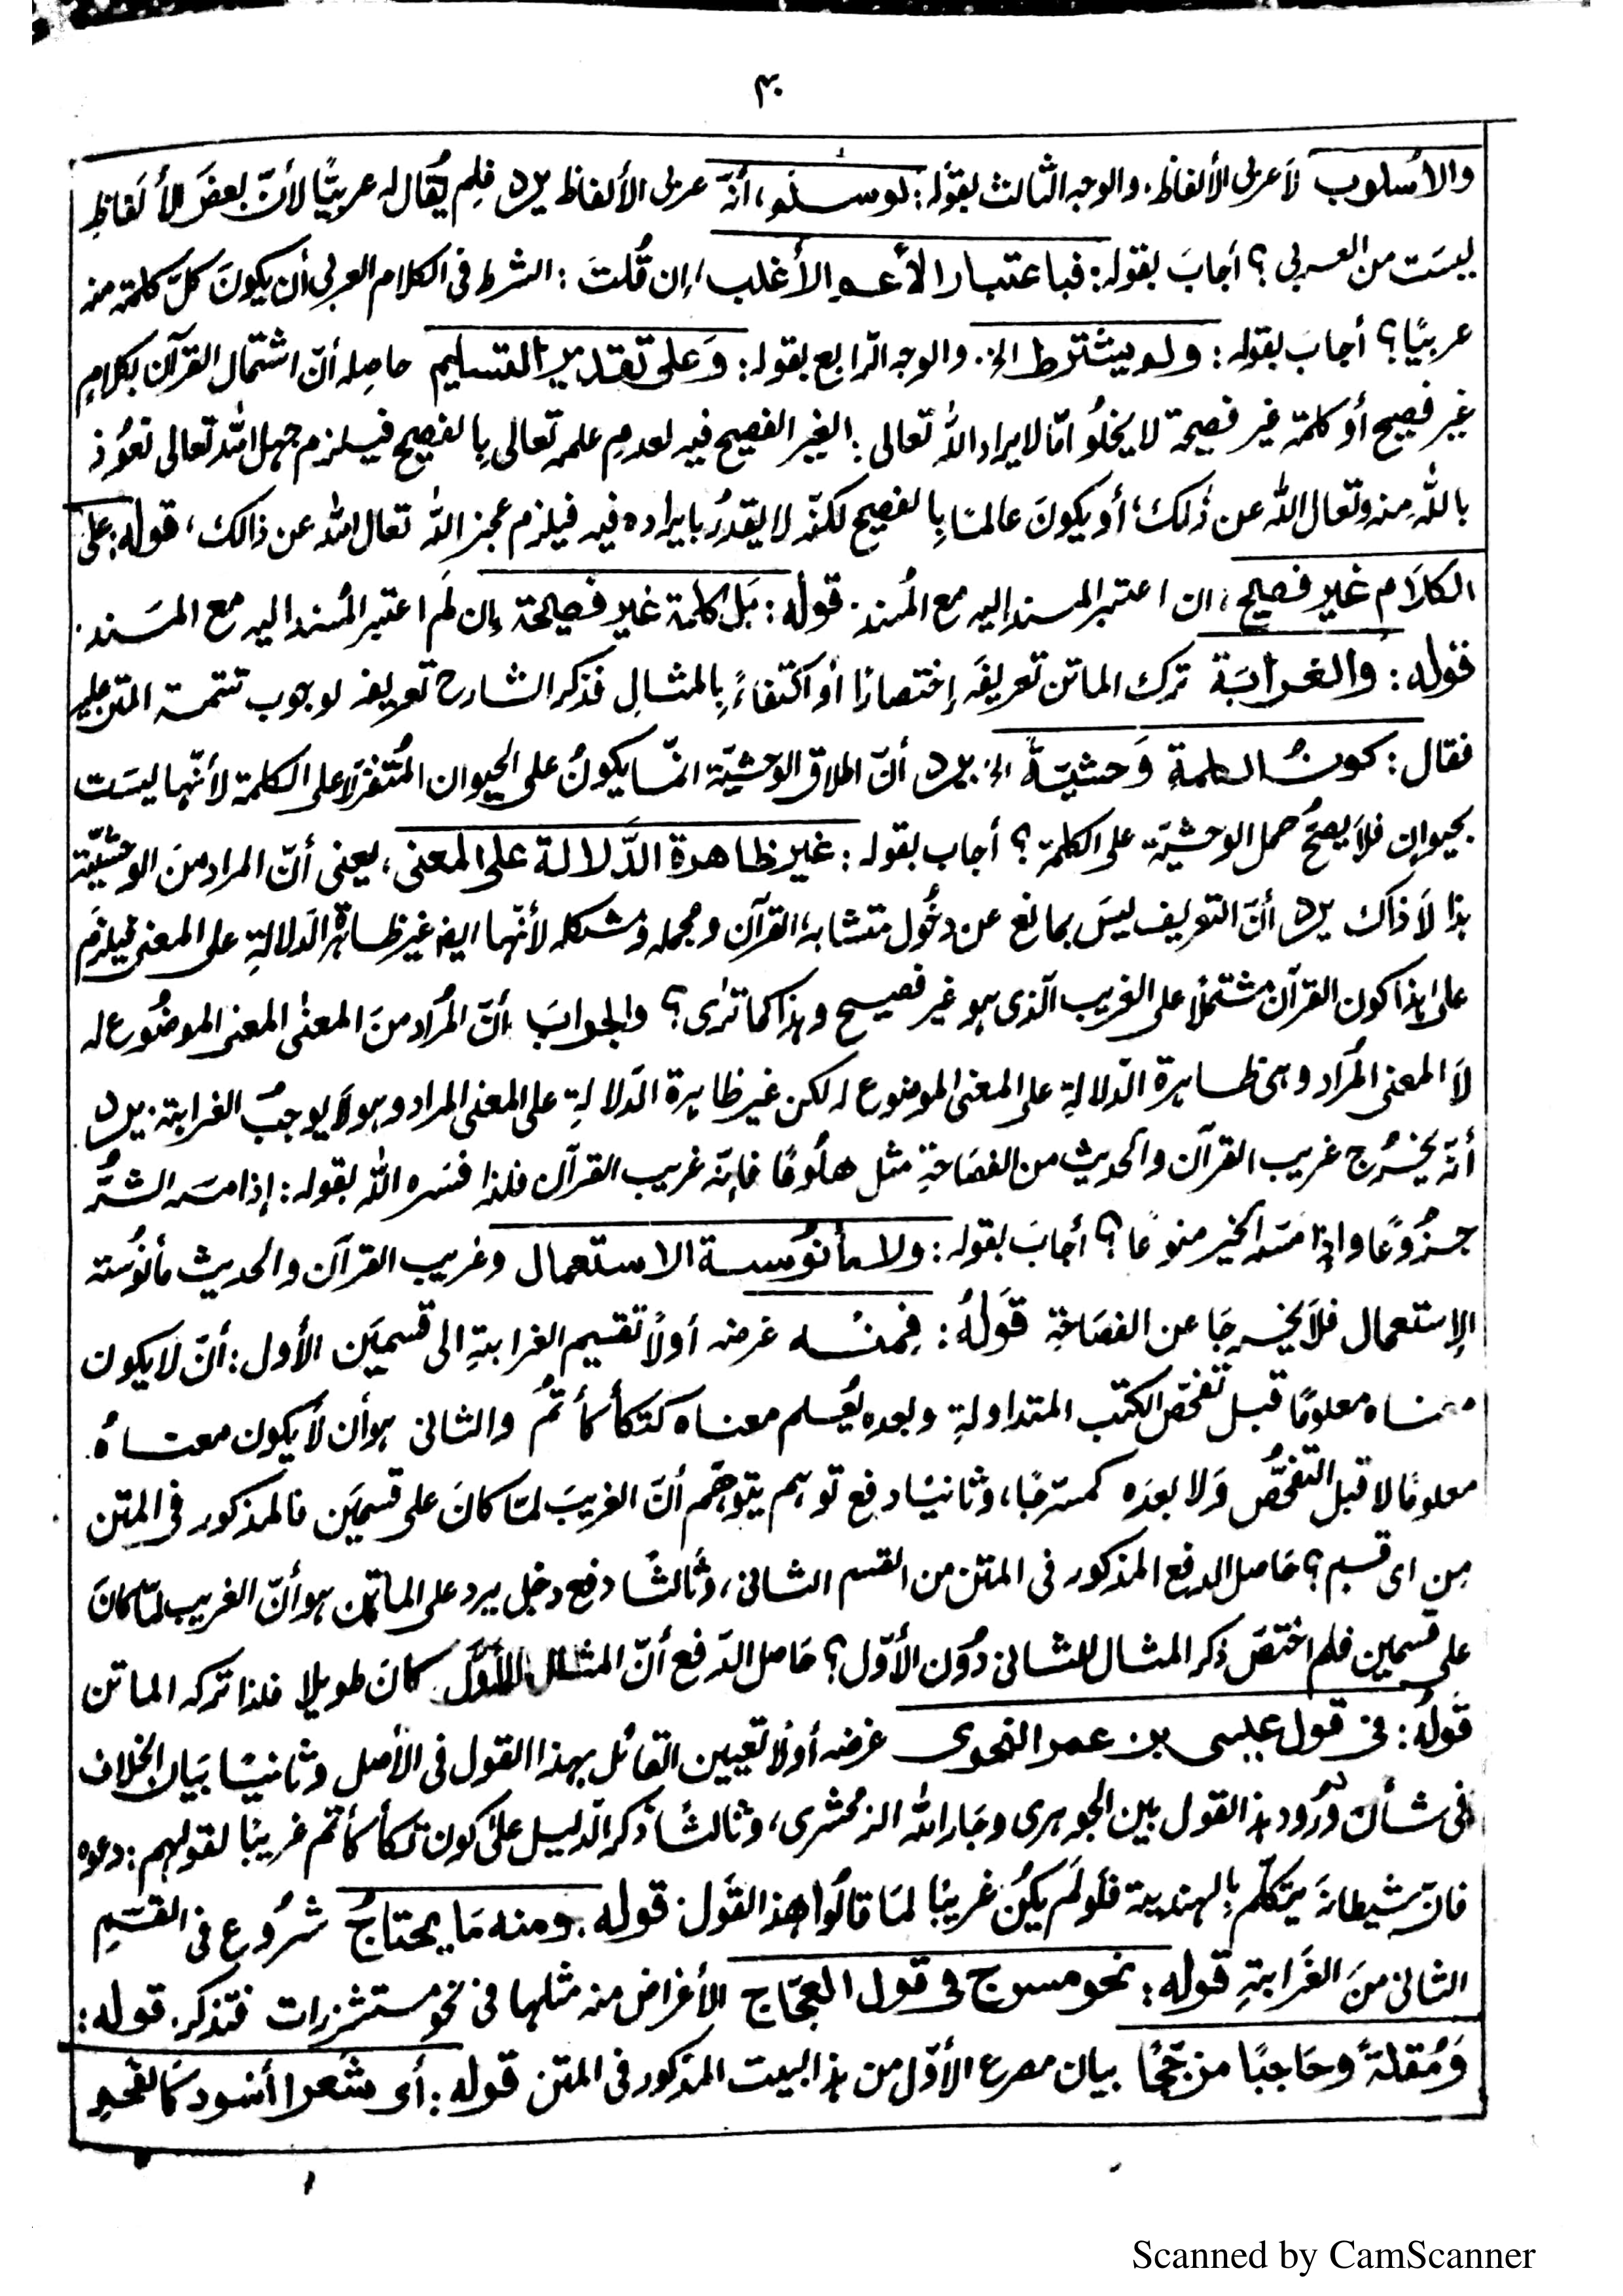 ۳۰
والأسلوب لا عربى الألفاظ، والوجه الثالث بقوله: لو سلم، أنه عربى الألفاظ يرد فلم يقال له عربيًّا لأنّ بعض الألفاظِ
ليست من العربى؟ أجابَ بقوله: فباعتبار الأعم الأغلب، إن قُلتَ: الشرط فى الكلام العربى أن يكونَ كلّ كلمة منه
عربيًا؟ أجابَ بقوله: ولم يشترط الخ. والوجه الرّابع بقوله: وَعلى تقدير التسليم حاصله أنّ اشتمال القرآن بكلامٍ
غير فصيح أو كلمة غير فصيحة لا يخلُو امّا لايراد الله تعالى الغير الفصيح فيه لعدمِ علمه تعالى بِالفصيح فيلزم جهل الله تعالى نعُوذ
باللهِ منه وتعال الله عن ذٰلك، أو يكونَ عالمًا بِالفصيح لكنّه لا يقدرُ بايراده فيه فيلزم عجز الله تعال الله عن ذالك، قوله: على
الكلاَم غير فصيح، ان اعتبر المسند اليه مع المُسند. قوله: بَل كلمة غير فصيحة إن لَم اعتبر المُسند اليه مع المسَند.
قوله: والغرابَة ترك الماتن تعريفَه إختصارًا أو اكتفاءً بِالمثالِ فذكر الشارح تعريفه لوجوب تتمة المتن عليه
فقال: كونُ الكلمةِ وَحشيّةً الخ يرد أنّ اطلاق الوَحشيّة انّما يكونُ على الحيوان المُتنفّر لا على الكلمة لأنّها ليسَت
بحيوان فلاَ يصحُّ حمل الوحشيّة على الكلمة؟ أجاب بقوله: غير ظاهرة الدَّلالة على المعنى، يعنى أنّ المراد منَ الوحشيّة
هذا لاَ ذاك يرد أنّ التعريف ليسَ بمانع عن دخُول متشابه القرآن ومجمله ومشكله لأنّها ايضا غير ظاهرة الدلالةِ على المعنى فيلزم
على هذا كون القرآن مشتملًا على الغريب الّذى هو غير فصيح وهذا كما ترٰى؟ والجوابَ أنّ المُراد منَ المعنٰى المعنى الموضُوع له
لاَ المعنى المُراد وهى ظاهرة الدّلالةِ على المعنى الموضوع له لكن غير ظاهرة الدّلالةِ على المعنى المراد وهو لاَ يوجبُ الغرابة. يرد
أنّه يخرُج غريب القرآن والحديث من الفصَاحةِ مثل هلُوعًا فإنّه غريب القرآن فلذا فسّره الله بقوله: إذا مسّه الشرُّ
جزُوعًا واذا مَسّه الخير منوعًا؟ أجابَ بقوله: ولا مأنوُسة الاستعمال وغريب القرآن والحديث مأنُوسَة
الإستعمال فلاَ يخرجَا عن الفصَاحَةِ قَولهُ: فمنه غرضه اَولاً تقسيم الغرابةِ الى قسميَن الأول: أنّ لا يكون
معناه معلومًا قبل تفحّص الكتب المتداولةِ وبعده يُعلم معناه كتكأكأتمُ والثانى هو أن لاَ يكون معناهُ
معلومًا لا قبل التفحّصُ وَلا بعدَه كمسَرجًا، وثانيًا دفع توهم يتوجّهم أنّ الغريبَ لمّا كانَ على قسميَن فالمذكور فى المتن
مِن اى قسم؟ حَاصل الدفع المذكور فى المتن من القسم الثانى، وثَالثًا دفع دخل يرد على الماتن هو أنّ الغريب لمّا كانَ
على قسمين فلم اختصَ ذكر المثال للثانى دُوَن الأوّل؟ حَاصل الدّفع أنّ المثال للأوّل كانَ طويلا فلذا تركه الماتن
قَولهُ: فى قول عيسى بن عمر النحوى غرضه أولًا تعيين القائل بهذا القول فى الأصل وثانيًا بيَان الخلاف
فى شأن وُرُود هذا القول بين الجوهرى وجَار الله الزمخشرى، وثالثًا ذكر الدّليل على كون تكأكأتم غريبًا لقولهم: دعوه
فان شيطانه يتكلّم بِالهندية فلَو لَم يكُن غريبًا لمَا قالُوا هذا القَول قوله. ومنه مَا يحتاجُ شرُوع فى القسَمِ
الثانى منَ الغَرابةِ قوله: نحو مسرج فى قول العجّاج الأغراض منه مثلها فى نحو مستشزرات فتذكر. قوله:
وَمُقلةً وحَاجبًا مزجّجًا بيان مصرع الأوّل من هذا البيت المذكور فى المتن قوله: أى شَعرا أسود كالفحم
Scanned by CamScanner